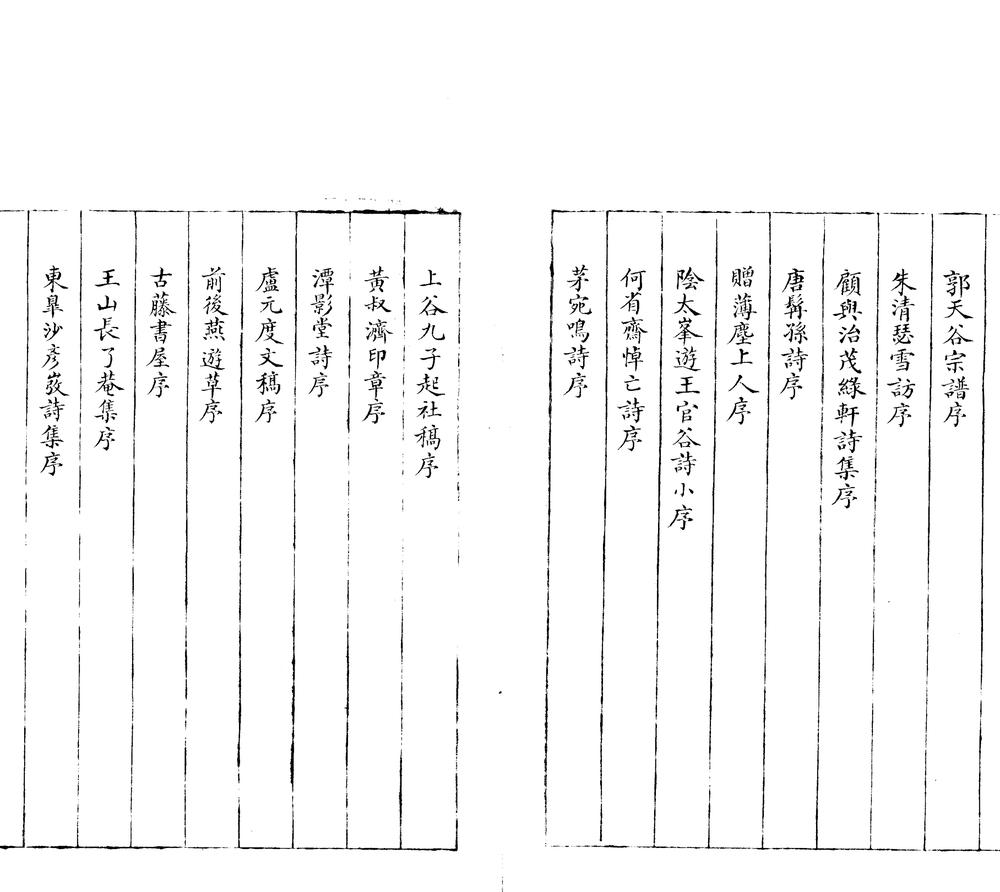 郭天谷宗譜序
朱清瑟雪訪序
顧與治茂綠軒詩集序
唐髯孫詩序
贈薄塵上人序
陰太峯遊王官谷詩小序
何省齋悼亡詩序
茅宛鳴詩序
上谷九子起社稿序
黃叔濟印章序
潭影堂詩序
盧元度文稿序
前後燕遊草序
古藤書屋序
王山長了菴集序
東臯沙彥詩集序